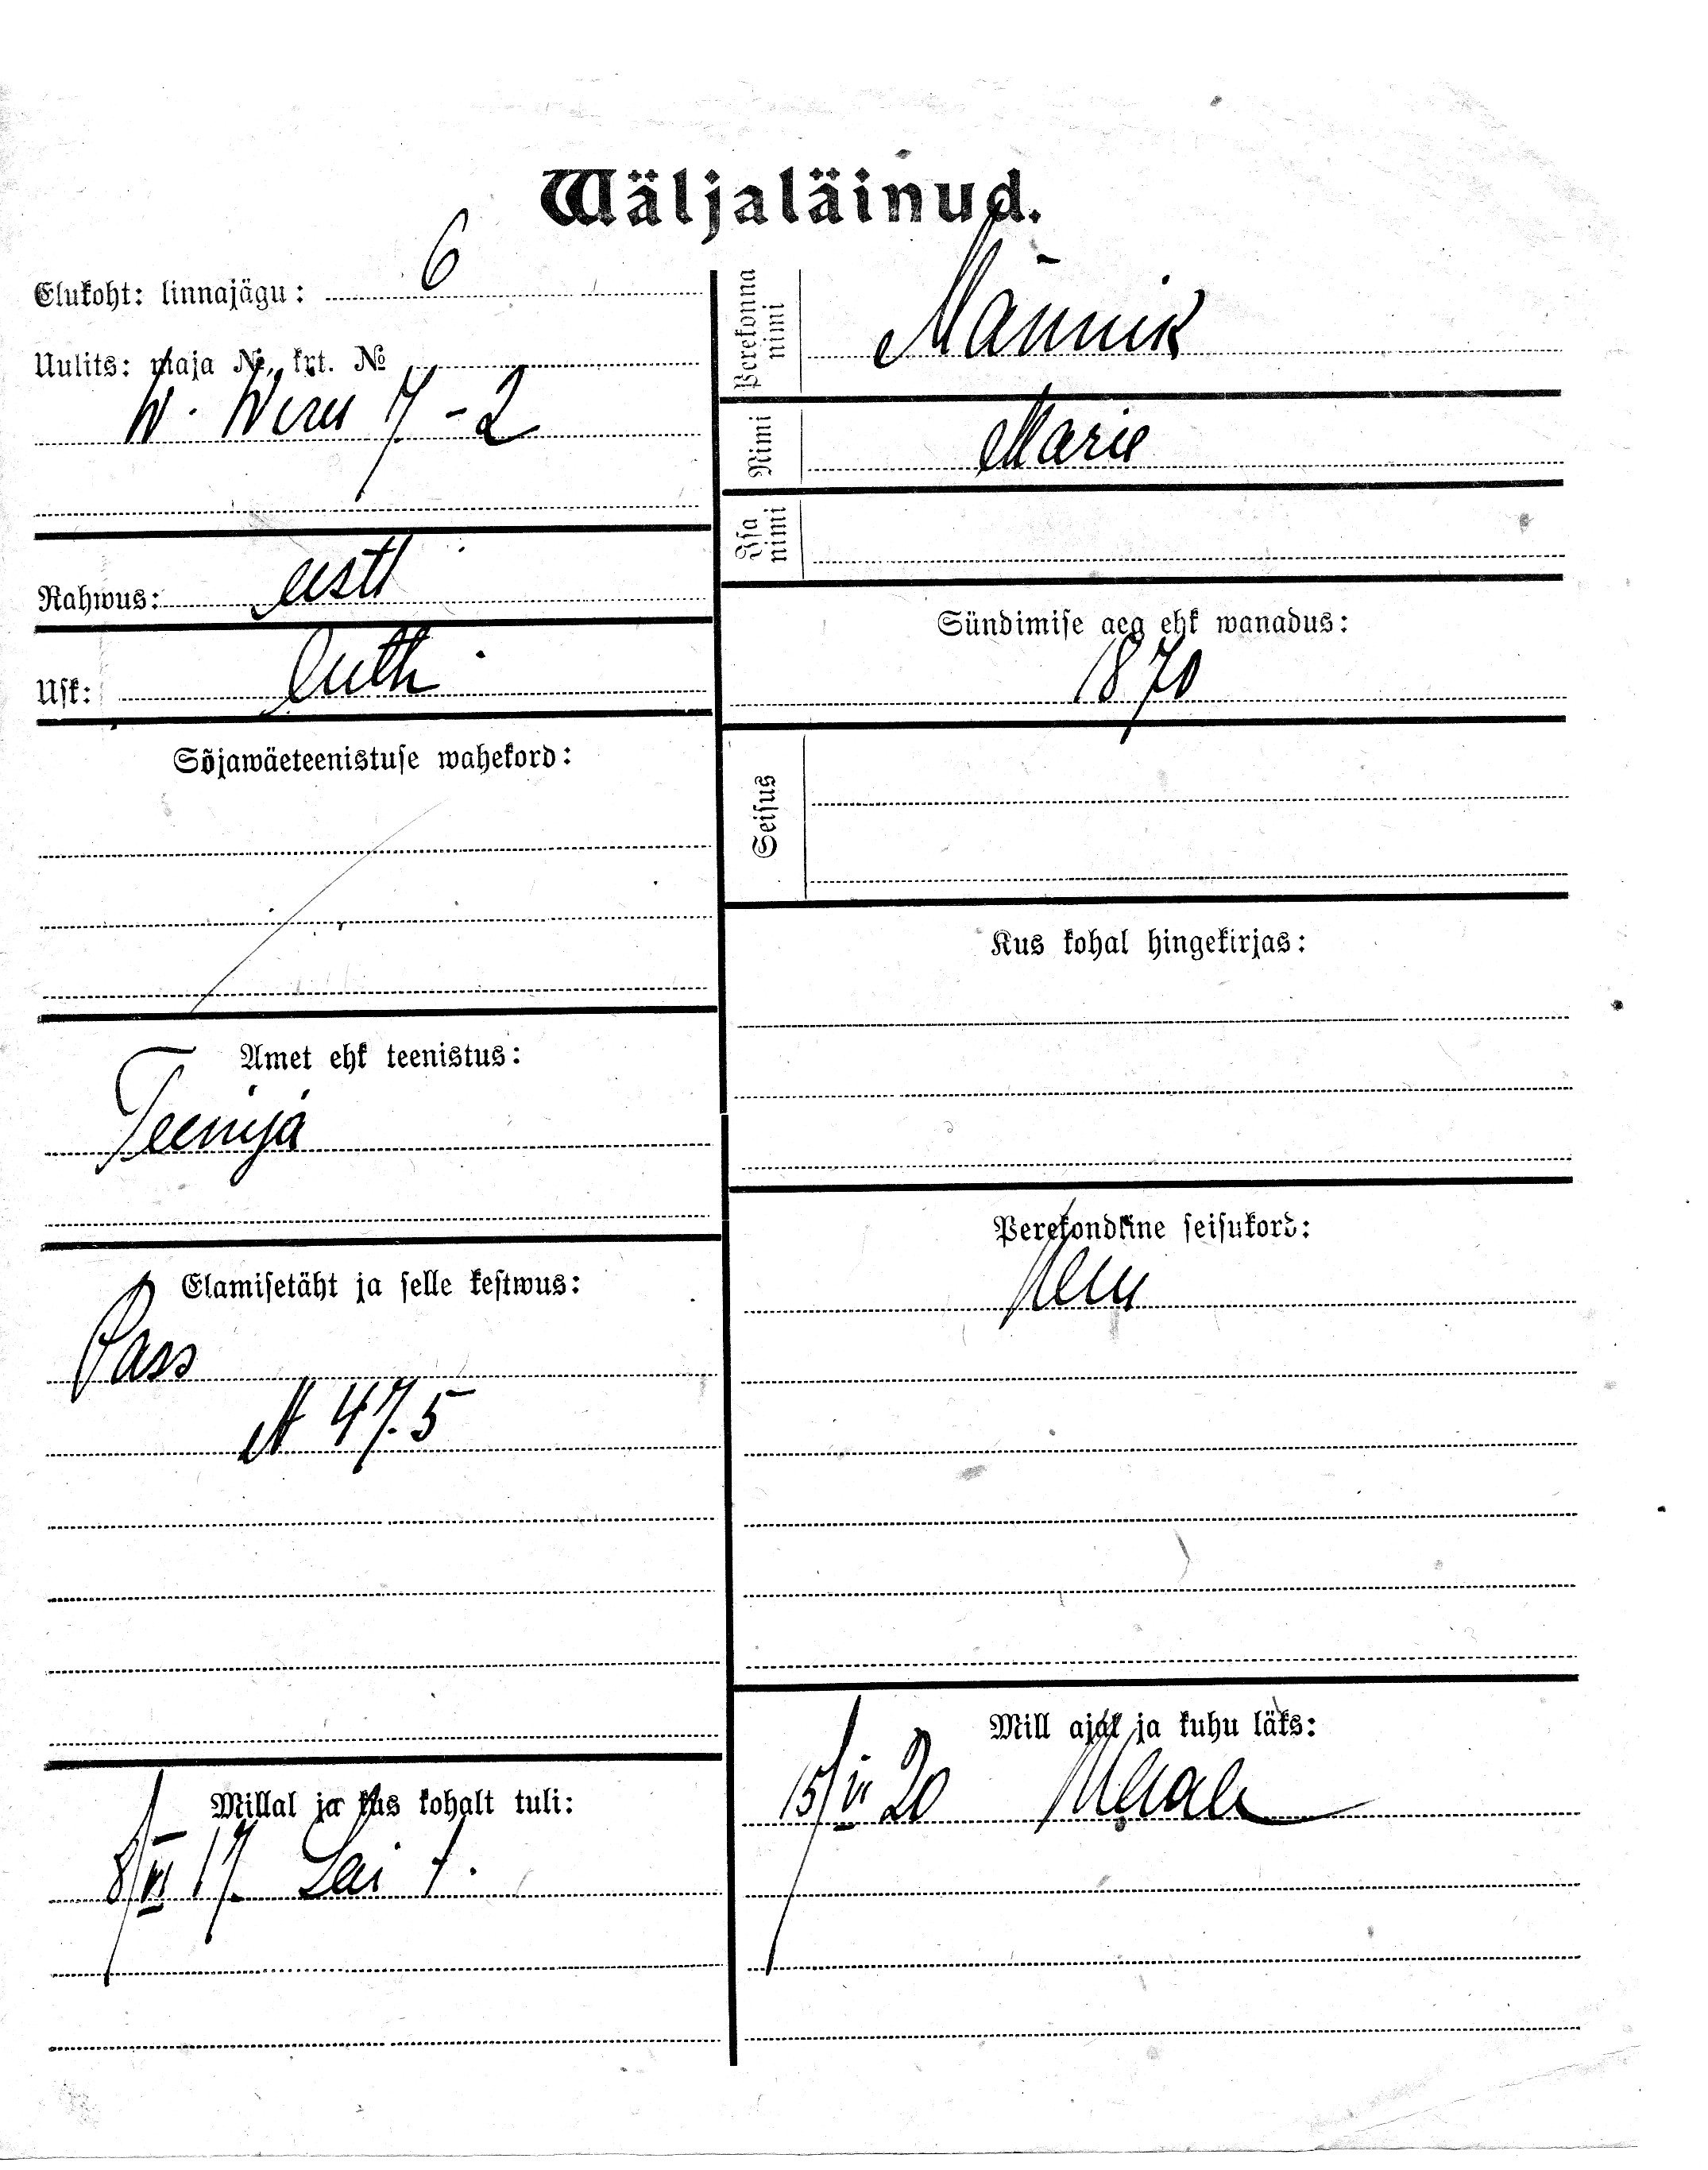 Wäljaläinud.
Elukoht: linnajägu: 6
Uulits: maja №, krt. №
W. Wiru 7-2
Rahwus: eesti
Usk: luth.
Sõjawäeteenistuse wahekord:
Amet ehk teenistus:
Teenija
Elamisetäht ja selle kestwus:
Pass
№ 475
Millal ja kus kohalt tuli:
8/VI 17. Lai 1.
Perekonna nimi Männik
Nimi Marie
Isa nimi
Sündimise aeg ehk wanadus:
1870
Seisus
Kus kohal hingekirjas:
Perekondline seisukord:
Mill ajal ja kuhu läks:
15/VI 20